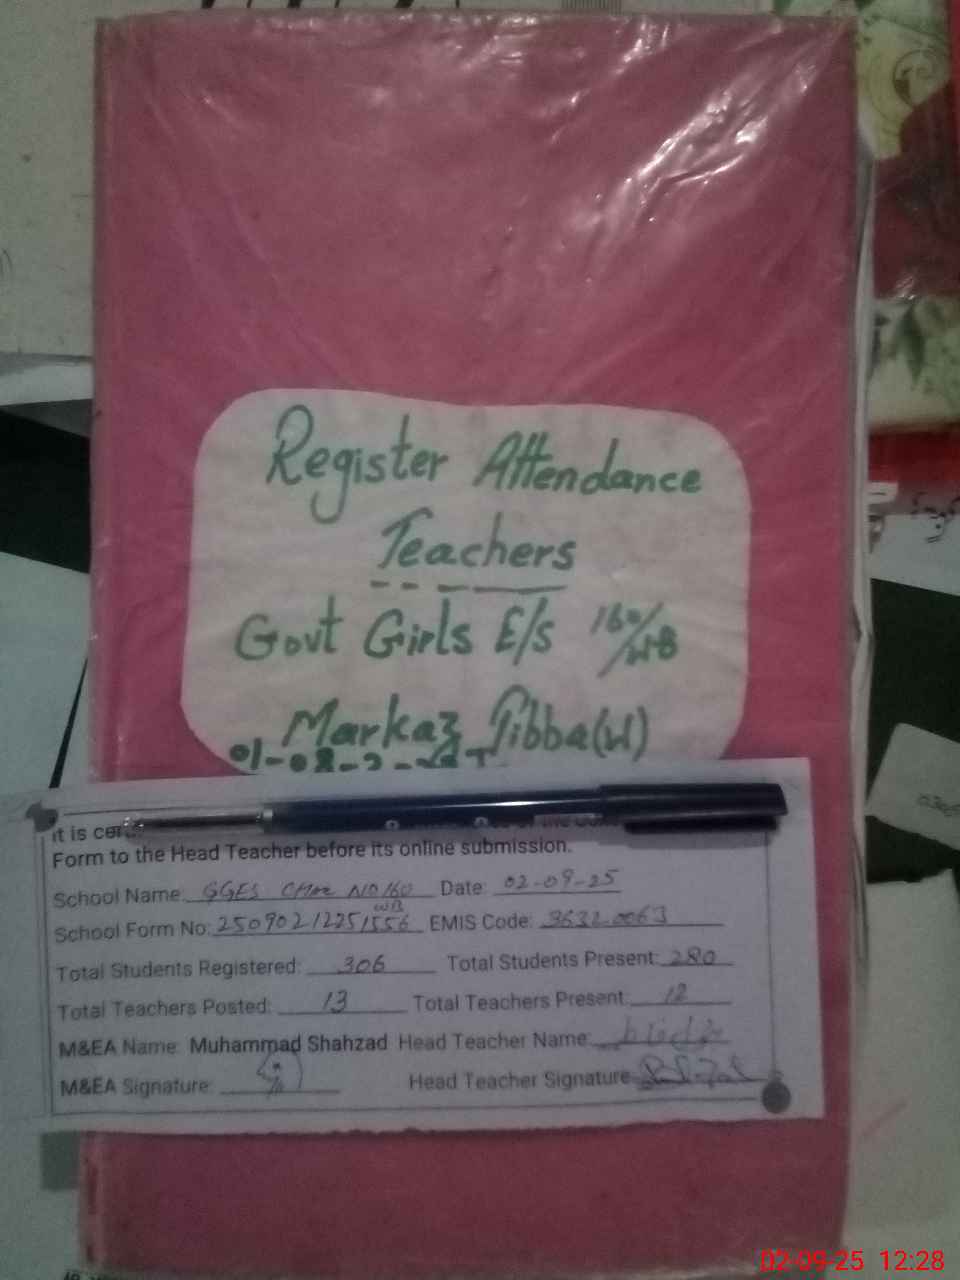 Register Attendance
Teachers
Govt Girls E/S 160/WB
Markaz Tibba(W)
01-08-2
it is cer
Form to the Head Teacher before its online submission.
School Name: GGES CHAK NO 160 WB Date: 02-09-25
School Form No: 25090212251556 EMIS Code: 36320063
Total Students Registered: 306 Total Students Present: 280
Total Teachers Posted: 13 Total Teachers Present: 12
M&EA Name: Muhammad Shahzad Head Teacher Name:
M&EA Signature: Head Teacher Signature
02-09-25 12:28